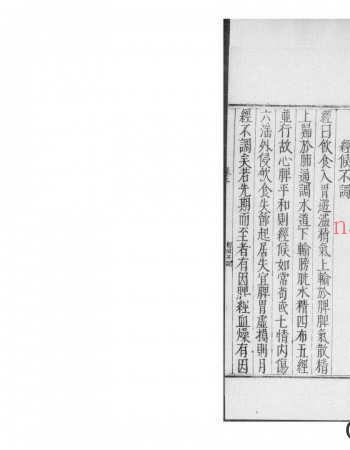 經候不調
經曰飲食入胃遊溢精氣上輸於脾脾氣散精
上歸於肺通調水道下輸膀胱水精四布五經
並行故心脾平和則經候如常苟或七情內傷
六淫外侵飲食失節起居失宜脾胃虛損則月
經不調矣若先期而至者有因脾經血燥有因